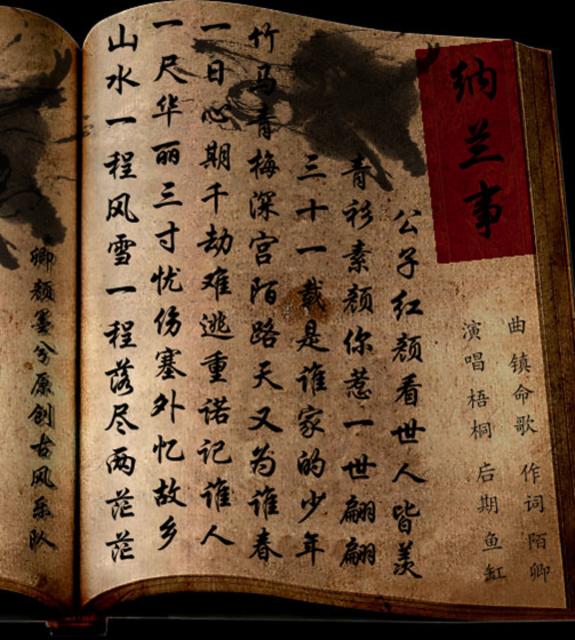 纳兰事
曲 镇命歌 作词 陌卿
演唱 梧桐 后期 鱼缸
公子红颜看世人皆羡
青衫素颜你惹一世翩翩
三十一载是谁家的少年
竹马青梅深宫陌路天又为谁春
一日心期千劫难逃重诺记谁人
一尺华丽三寸忧伤塞外忆故乡
山水一程风雪一程落尽两茫茫
卿颜墨兮原创古风乐队